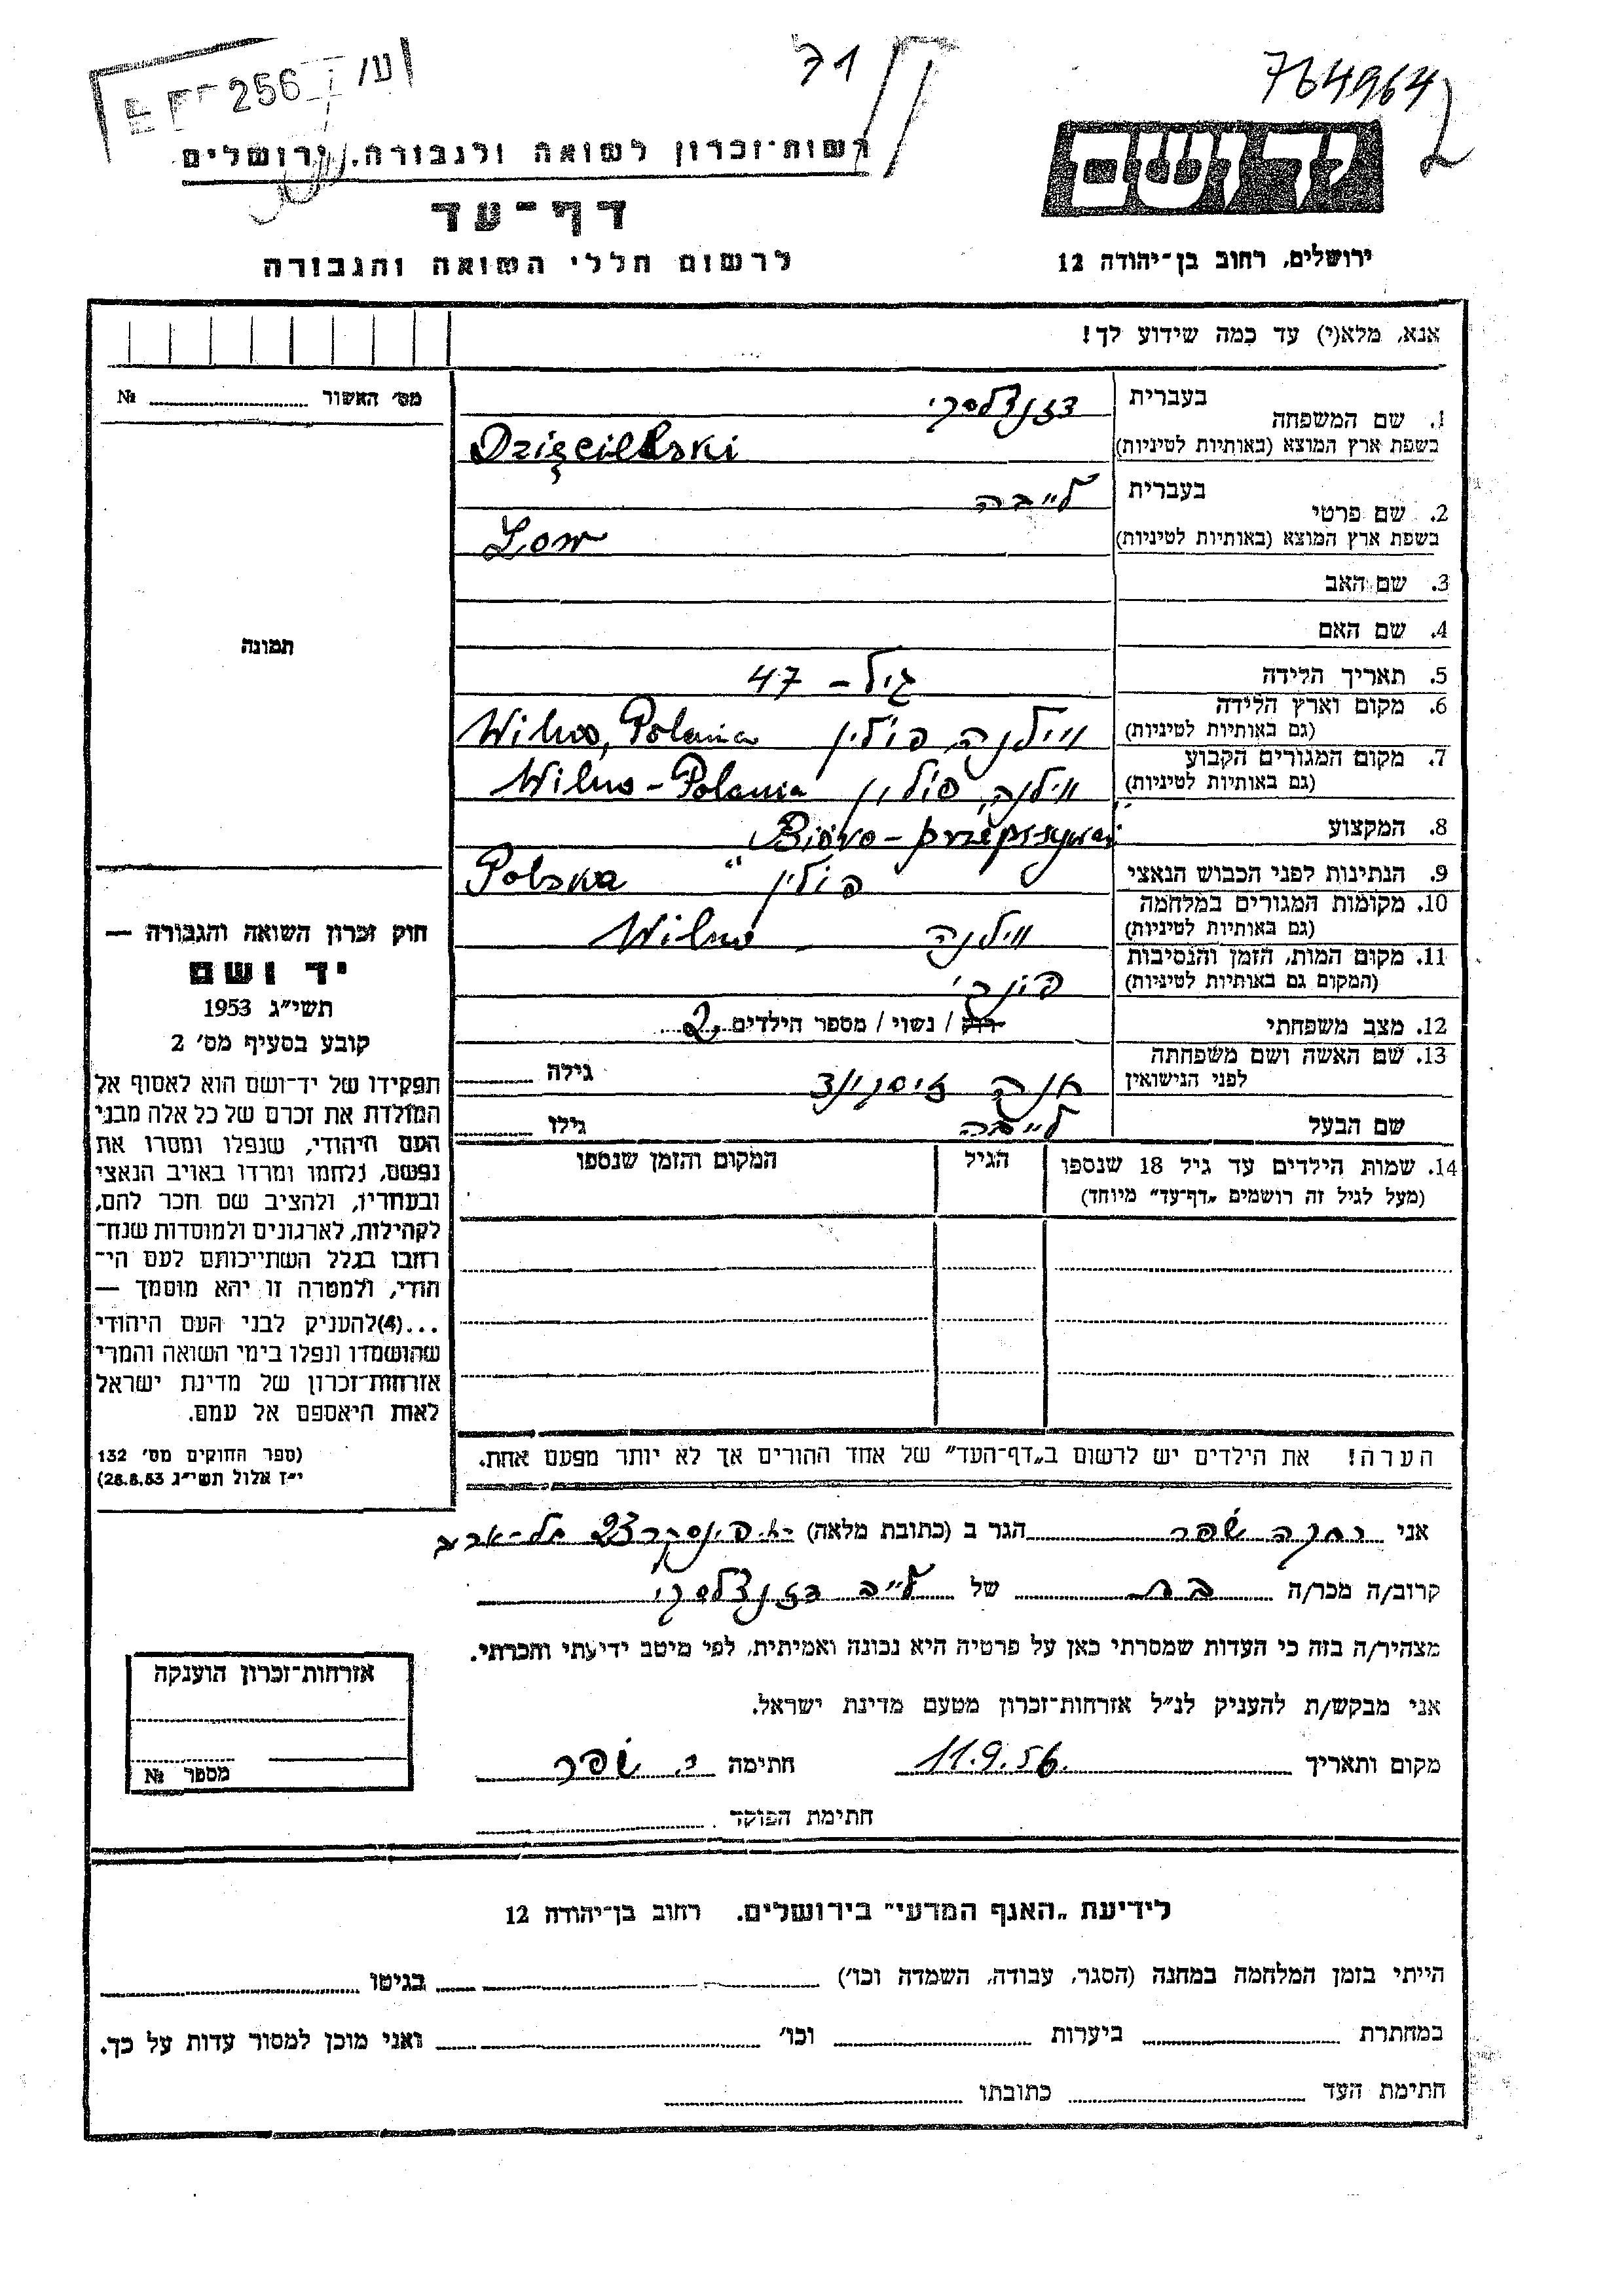 256 ע/
71
764964
2
יד ושם
רשות-זכרון לשואה ולגבורה, ירושלים
דף-עד
לרשום חללי השואה והגבורה
ירושלים, רחוב בן-יהודה 12
אנא, מלא(י) עד כמה שידוע לך!
מס׳ האשור № 
בעברית
1. שם המשפחה
בשפת ארץ המוצא (באותיות לטיניות)
Dzięcielski
בעברית לייבה
2. שם פרטי
בשפת ארץ המוצא (באותיות לטיניות)
Low
3. שם האב
4. שם האם
תמונה
5. תאריך הלידה גיל - 47
6. מקום וארץ הלידה
(גם באותיות לטיניות) ווילנה, פולין Wilno, Polania
7. מקום המגורים הקבוע
(גם באותיות לטיניות) ווילנה, פולין Wilno - Polania
8. המקצוע "Bióro - przepisywań"
9. הנתינות לפני הכבוש הנאצי פולין Polska
10. מקומות המגורים במלחמה
(גם באותיות לטיניות) ווילנה Wilno
11. מקום המות, הזמן והנסיבות
(המקום גם באותיות לטיניות) פונרי
12. מצב משפחתי רוק / נשוי / מספר הילדים 2
13. שם האשה ושם משפחתה
לפני הנישואין חנה גילה
שם הבעל לייבה גילו
14. שמות הילדים עד גיל 18 שנספו הגיל המקום והזמן שנספו
(מעל לגיל זה רושמים „דף-עד״ מיוחד)
הערה! את הילדים יש לרשום ב„דף-העד״ של אחד ההורים אך לא יותר מפעם אחת.
חוק זכרון השואה והגבורה —
יד ושם
תשי״ג 1953
קובע בסעיף מס׳ 2
תפקידו של יד-ושם הוא לאסוף אל
המולדת את זכרם של כל אלה מבני
העם היהודי, שנפלו ומסרו את
נפשם, נלחמו ומרדו באויב הנאצי
ובעוזריו, ולהציב שם וזכר להם,
לקהילות, לארגונים ולמוסדות שנח-
רחבו בגלל השתייכותם לעם הי-
הודי, ולמטרה זו יהא מוסמך —
...(4)להעניק לבני העם היהודי
שהושמדו ונפלו בימי השואה והמרי
אזרחות-זכרון של מדינת ישראל
לאות היאספם אל עמם.
(ספר החוקים מס׳ 132
י״ז אלול תשי״ג 28.8.53)
אני שפר הגר ב (כתובת מלאה) פינסקר 23 תל-אביב
קרוב/ה מכר/ה בת של לייב
מצהיר/ה בזה כי העדות שמסרתי כאן על פרטיה היא נכונה ואמיתית, לפי מיטב ידיעתי והכרתי.
אני מבקש/ת להעניק לנ״ל אזרחות-זכרון מטעם מדינת ישראל.
מקום ותאריך 11.9.56 חתימה שפר
חתימת הפוקד
אזרחות-זכרון הוענקה
מספר №
לידיעת „האגף המדעי״ בירושלים. רחוב בן-יהודה 12
הייתי בזמן המלחמה במחנה (הסגר, עבודה, השמדה וכו׳) בגיטו
במחתרת ביערות וכו׳ ואני מוכן למסור עדות על כך.
חתימת העד כתובתו